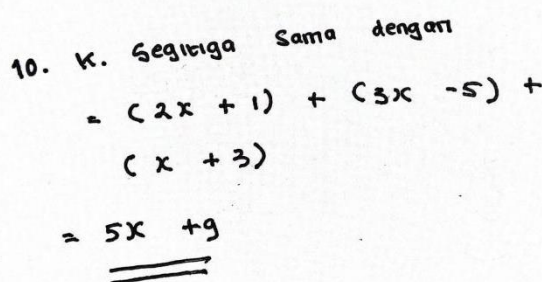 10. K. Segitiga Sama dengan
= (2x + 1) + (3x - 5) +
(x + 3)
= 5x + 9